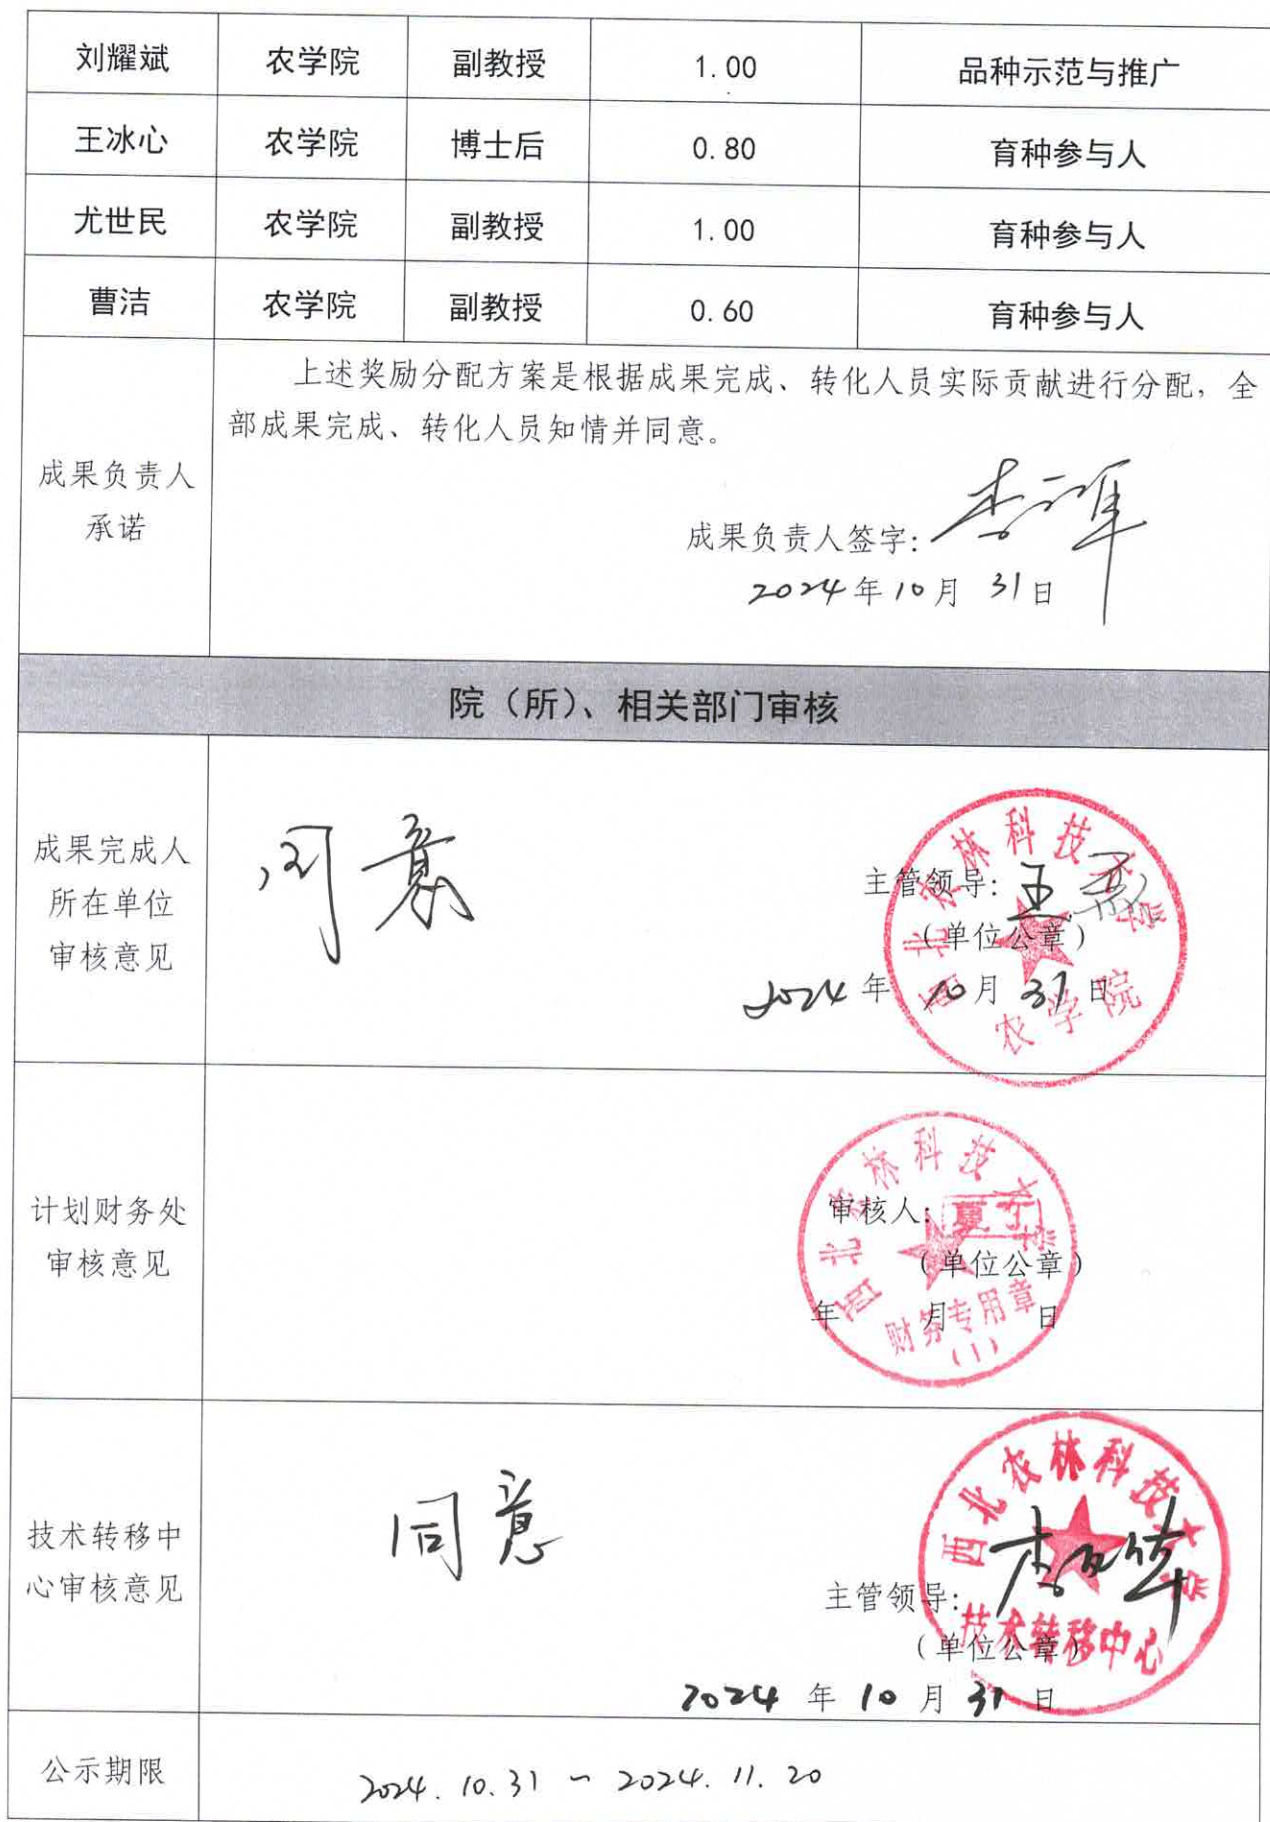 刘耀斌 农学院 副教授 1.00 品种示范与推广
王冰心 农学院 博士后 0.80 育种参与人
尤世民 农学院 副教授 1.00 育种参与人
曹洁 农学院 副教授 0.60 育种参与人
上述奖励分配方案是根据成果完成、转化人员实际贡献进行分配,全
部成果完成、转化人员知情并同意。
成果负责人
承诺
成果负责人签字:
2024年10月 31日
院(所)、相关部门审核
成果完成人
所在单位
审核意见
同意
主管领导:
(单位公章)
2024年 10月 31日
西北农林科技大学
农学院
计划财务处
审核意见
审核人:夏宁
(单位公章)
年 月 日
西北农林科技大学
财务专用章
(1)
技术转移中
心审核意见
同意
主管领导:
(单位公章)
2024 年 10 月 31 日
西北农林科技大学
技术转移中心
公示期限
2024.10.31 ~ 2024.11.20